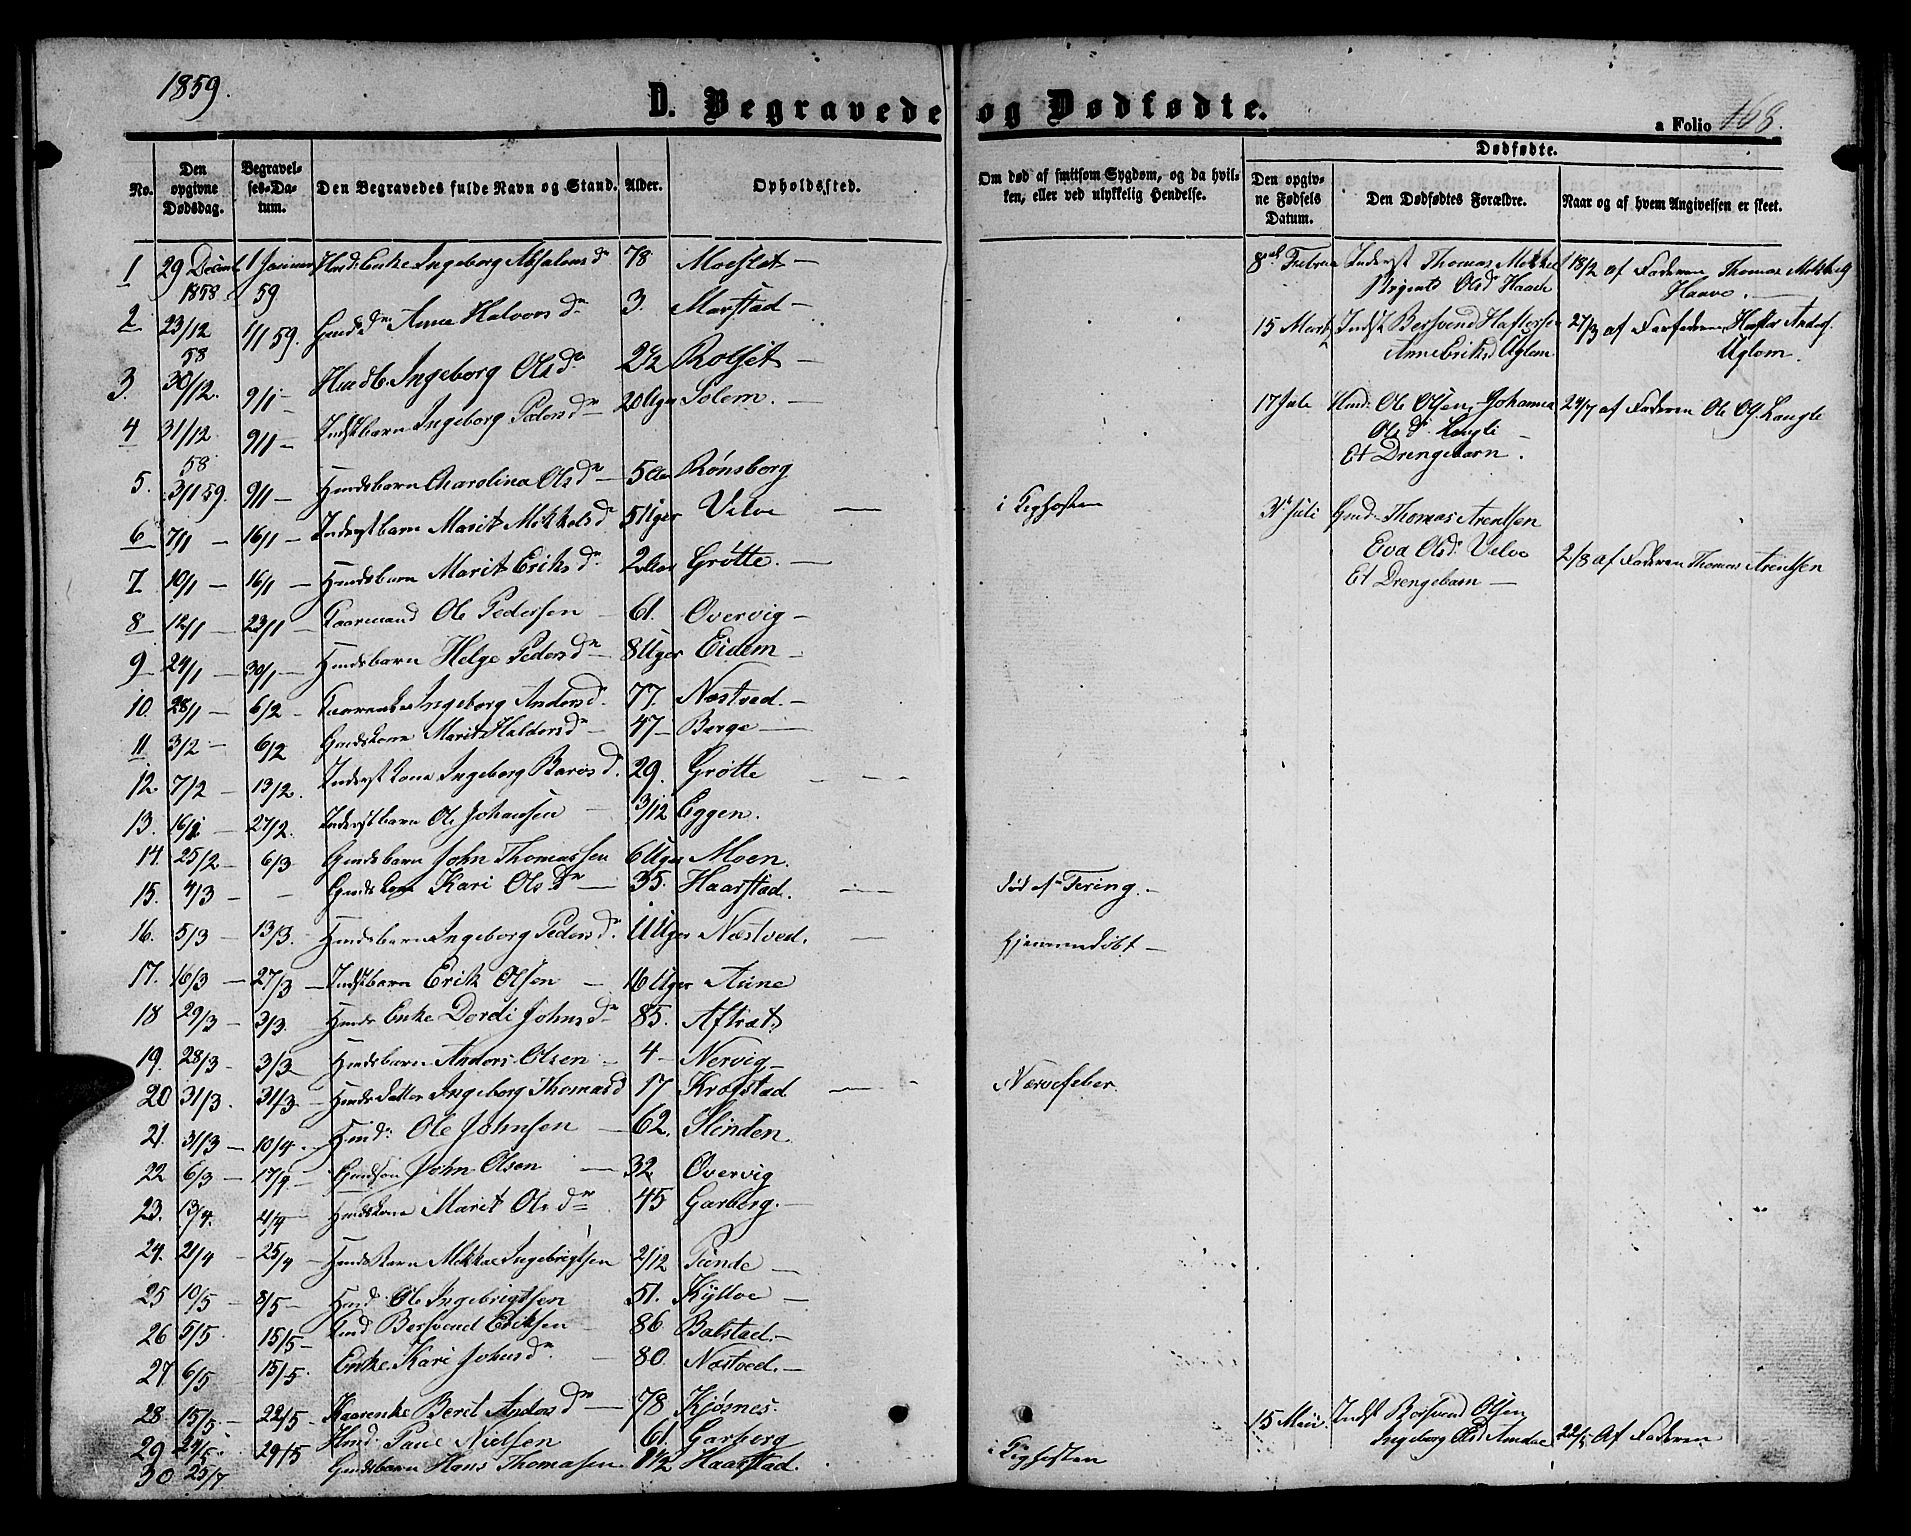 1859.
D. Begravede og Dødfødte.
a Folio 168.
No.
Den opgivne Dødsdag.
Begravelses-Datum.
Den Begravedes fulde Navn og Stand.
Alder.
Opholdssted.
Om død af smitsom Sygdom, og da hvilken, eller ved ulykkelig Hendelse.
Dødfødte.
Den opgivne Fødsels Datum.
Den Dødfødtes Forældre.
Naar og af hvem Angivelsen er skeet.
1 29 Decemb 1858 1 Januar 59. Huusb: Enke Ingeborg Absalonsdr 78 Moeslet —
2 23/12 58 1/1 59. Gmdsdr Anne Halvorsdr 3. Marstad —
3. 30/12. 9/1 — Ingeborg Olsdr 2 1/2 Rolset —
4 31/12 58 9/1 — Indstbarn Ingeborg Pedersdr 20 Uger Solem. —
5. 3/1 59. 9/1 — Huusbarn Charolina Olsdr — 5 Aar Rønsborg
6 7/1 — 16/1 — Inderstbarn Marit Mikkelsdr 5 Uger Velve — i Kighosten
7. 10/1 — 16/1 — Huusbarn Marit Eriksdr 2 Aar Grøtte. —
8 12/1 — 23/1 — Kaarmand Ole Pedersen — 61. Overvig —
9 24/1 — 30/1 — Huusbarn Helge Pedersdr — 8 Uger Eidem —
10. 28/1 — 6/2 — Kaarenke Ingeborg Andersd. 77. Næstved. —
11 3/2 — 6/2 Gmdskone Marit Haldorsdr — 47 — Berge —
12. 7/2 — 13/2. Inderstkone Ingeborg Barosd. 29. Grøtte —
13. 16/2 — 27/2. Inderstbarn Ole Johansen — 3/12 Eggen.
14. 25/2 — 6/3 Gmdsbarn John Thomassen 6 Uger Moen.
15. 4/3 — — Gmdskone Kari Olsdr — 35. Haarstad. — død af Tering. —
16. 5/3 — 13/3. Huusbarn Ingeborg Pedersd. 11 Uger Næstved. — hjemmedøbt —
17. 16/3 — 27/3 — Indstbarn Erik Olsen — 16 Uger Aune
18 29/3 — 3/3. Enke Dordi Johnsdr 85. Aftræt
19. 28/3 — 3/3 — Huusbarn Anders Olsen — 4 — Nervig —
20 31/3. 31/3 — Datter Ingeborg Thomasd 17 Krogstad — Nervefeber.
21. 31/3 — 10/4 — Ole Johnsen — 62. Slinden.
22 6/3 — 17/4 — Gmdsøn John Olsen — 32 Overvig
23. 13/4. 4/4 — Huuskone Marit Olsdr 45 Garberg. —
24. 21/4 — 25/4 — Huusbarn Mikkael Ingebrigtsen 2/12 Punde —
25 10/5 — 8/5 — Huusd Ole Ingebrigtsen 51. Kyllve —
26 5/5. 15/5 — Bersvend Eriksen — 86 Balstad. —
27 6/5 15/5. Enke Kari Johnsdr. — 80. Næstved. —
28. 15/5 — 22/5 — Kaarenke Beret Andersdr — 78 Kjøsnes.
29 24/5. 29/5 Huusd: Paul Nielsen — 61. Garberg
30 25/7 Gmdsbarn Hans Thomasen 8 1/2 Haarstad. i Kighosten
8de Februar Inderst Thomas Mikkel Brynild Olsdr Haave 18/2 af Faderen Thomas Mikkels Haave. —
15 Marts Indst Bersvend Haftorsen Anne Eriksd Uglom 27/3 af Farfaderen Haftor Anders. Uglom.
17 Juli Huusd: Ole Olsen, Johanna Olsdr. Langli — Et Drengebarn. 24/7 af Faderen Ole Ols. Langli
31 Juli Gmd: Thomas Arentsen Eva Olsdr. Velve Et Drengebarn — 2/8 af Faderen Thomas Arentsen
15 Mai. Indst Bersvend Olsen Ingeborg Olsd Amdal 22/5 Af Faderen